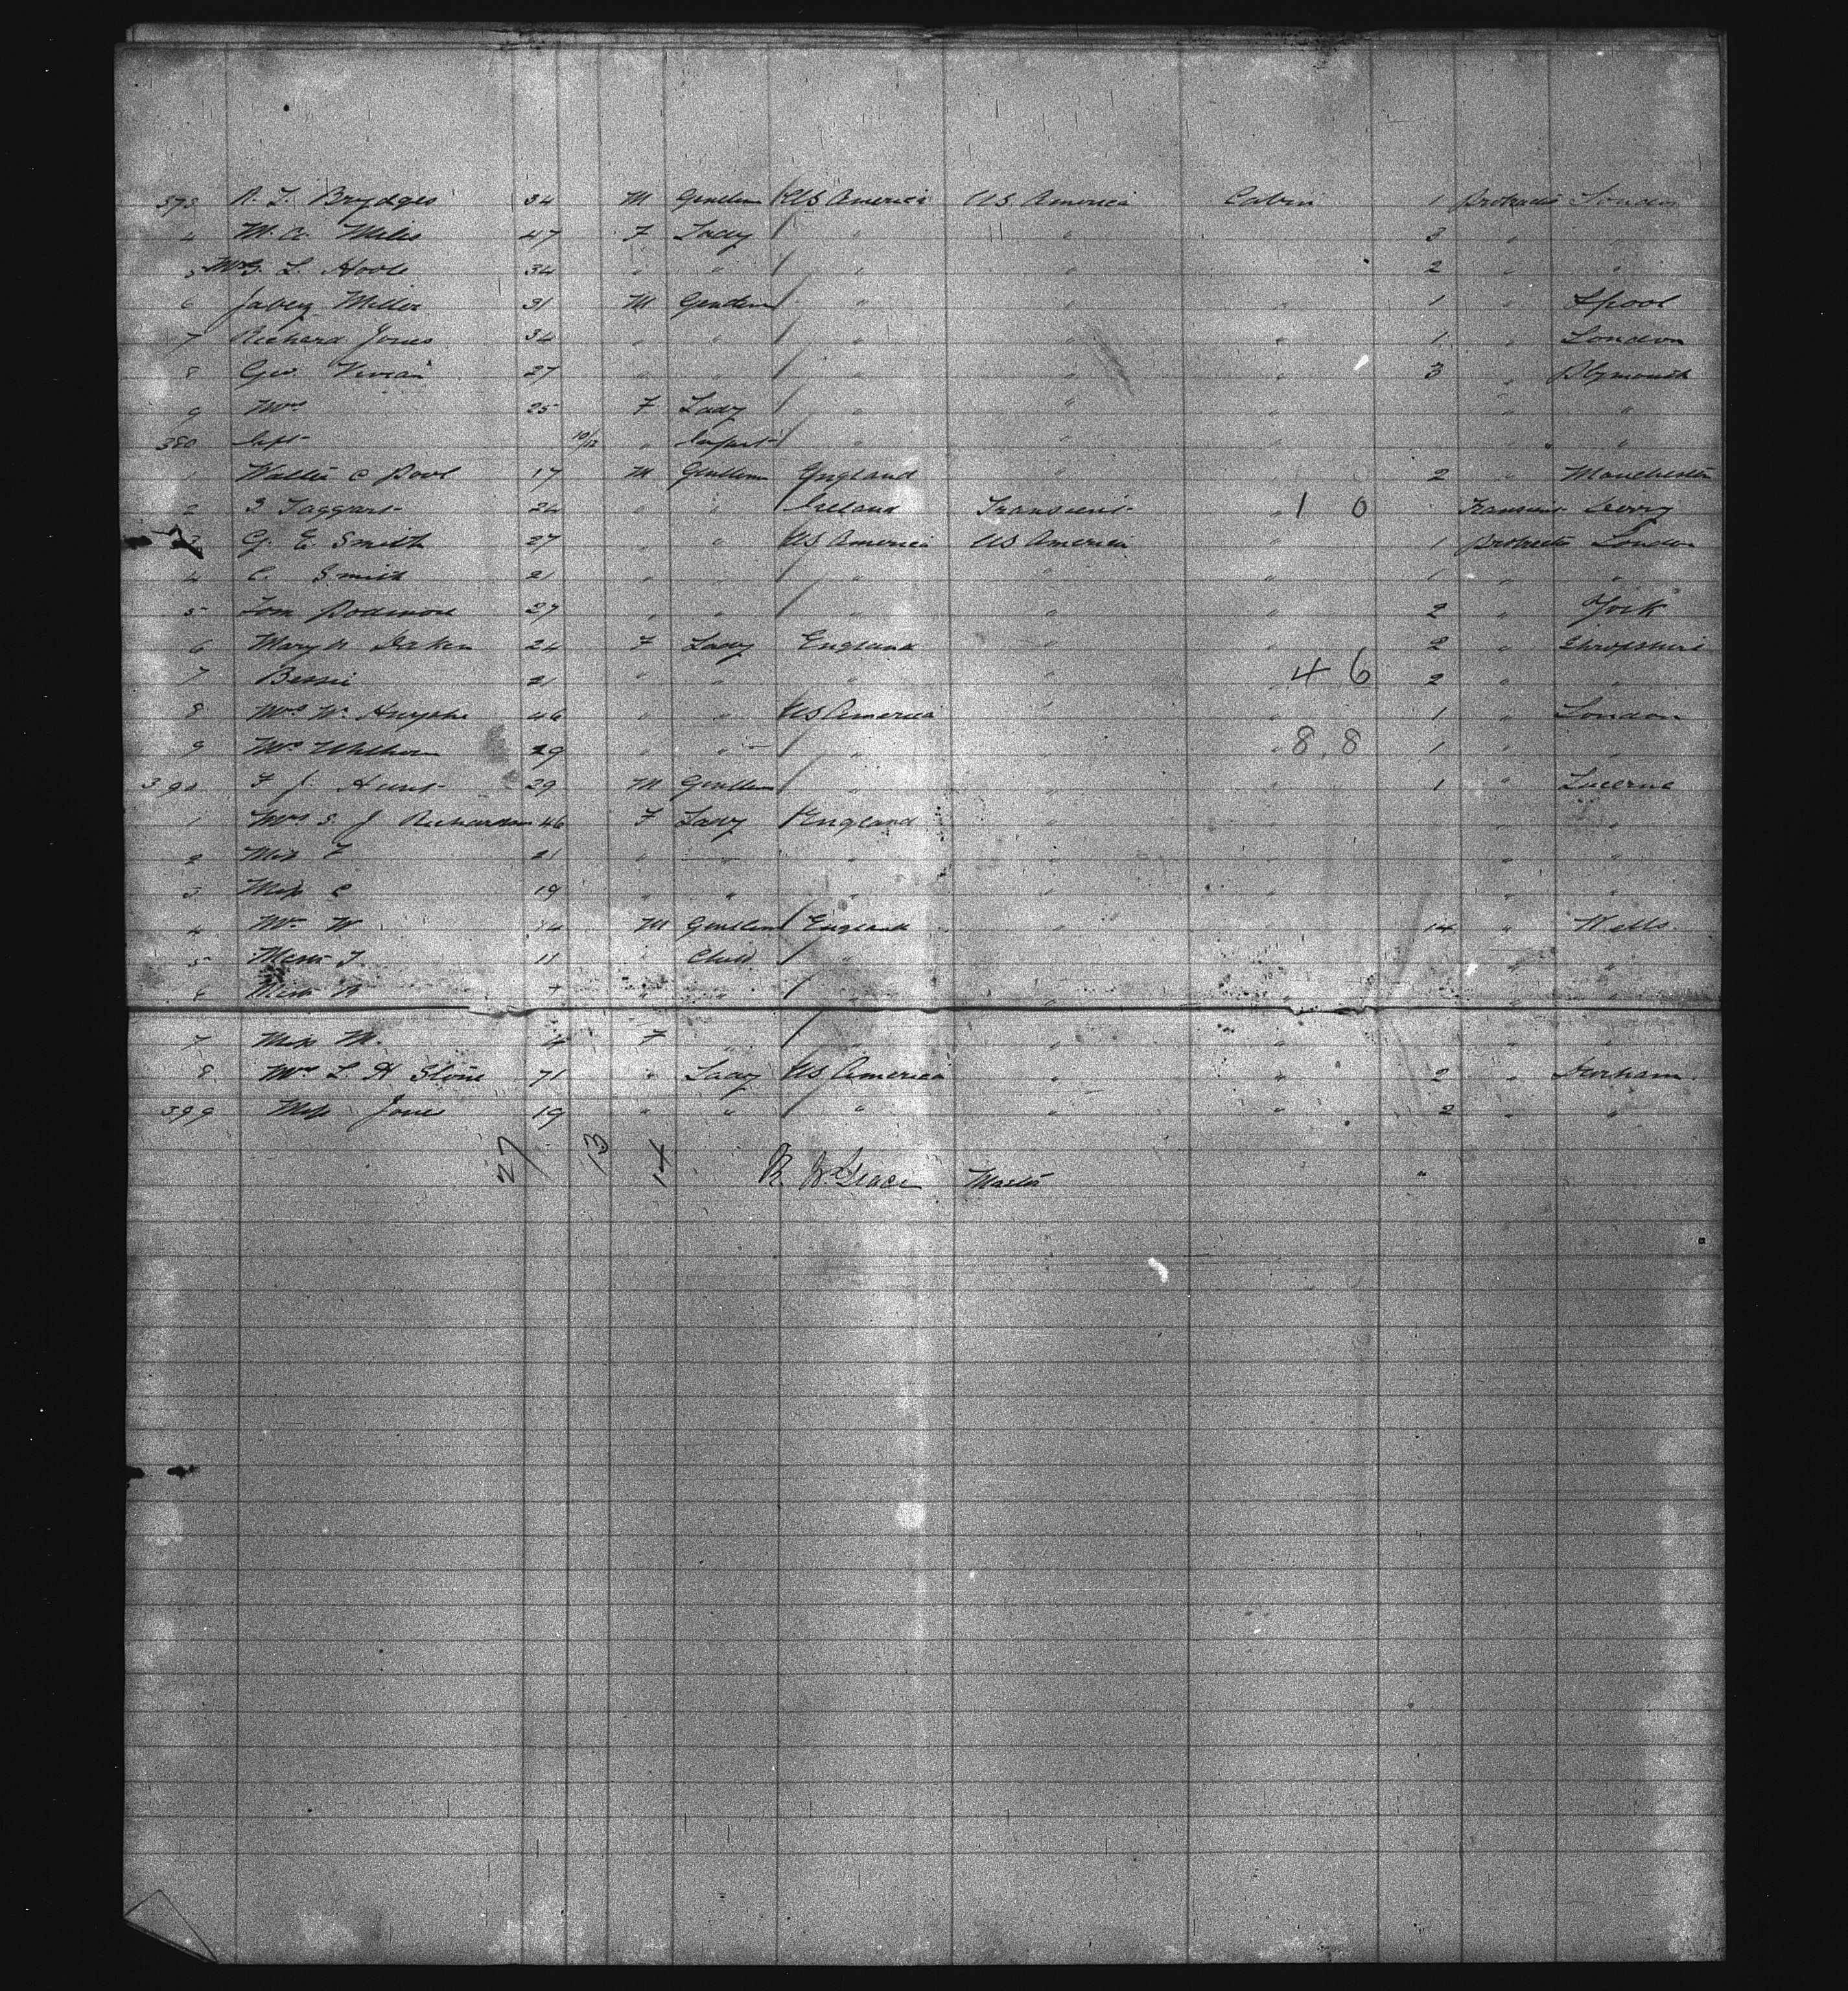 373 R. T. Brydges 34 M Gentlem US America US America Cabin 1 Protracted London
4 M. A. Miles 47 F Lady " " 3 " "
5 Mrs G. L. Hoole 34 " " " " 2 " "
6 Jabez Miller 31 M Gentlem " " " 1 " Lpool
7 Richard Jones 34 " " " " " 1 " London
8 Geo. Vivian 27 " " " " " 3 " Plymouth
9 Mrs 25 F Lady " " " " "
380 Inft 10/12 " Infant " " " "
1 Walter C Pool 17 M Gentlem England " 2 " Manchester
2 Taggart 24 " " Ireland Transient " 1 0 Transient Derry
3 G. E. Smith 27 " " US America US America " 1 Protracted London
4 C. Smith 21 " " " " " 1 " "
5 Tom 27 " " " " " 2 " York
6 Mary 24 F Lady England " " 2 " Shropshire
7 Bessie 21 " " " " " 4 6 2 " "
8 Mrs W. 46 " " US America " " 1 " London
9 Mrs 29 " " " " " 8 8 1 " "
390 F J. Hunt 29 M Gentlem " " " 1 " Lucerne
1 Mrs S. J Richardson 46 F Lady England " " "
2 Miss F 21 " " " " " "
3 Miss C 19 " " " " " " "
4 Mr W M Gentlem England " " 14 " Wells
5 T 11 " Child " " " "
6 " " " " " " "
7 Miss M. 4 F " " " " " "
8 Mrs L. H Stone 71 " Lady US America " " 2 " Durham
399 Miss Jones 19 " " " " " 2 " "
27 13 14 Master "